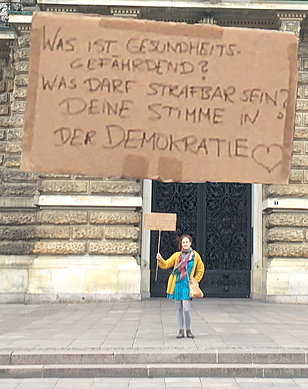 WAS IST GESUNDHEITS-
GEFÄHRDEND?
WAS DARF STRAFBAR SEIN?
DEINE STIMME IN
DER DEMOKRATIE♡